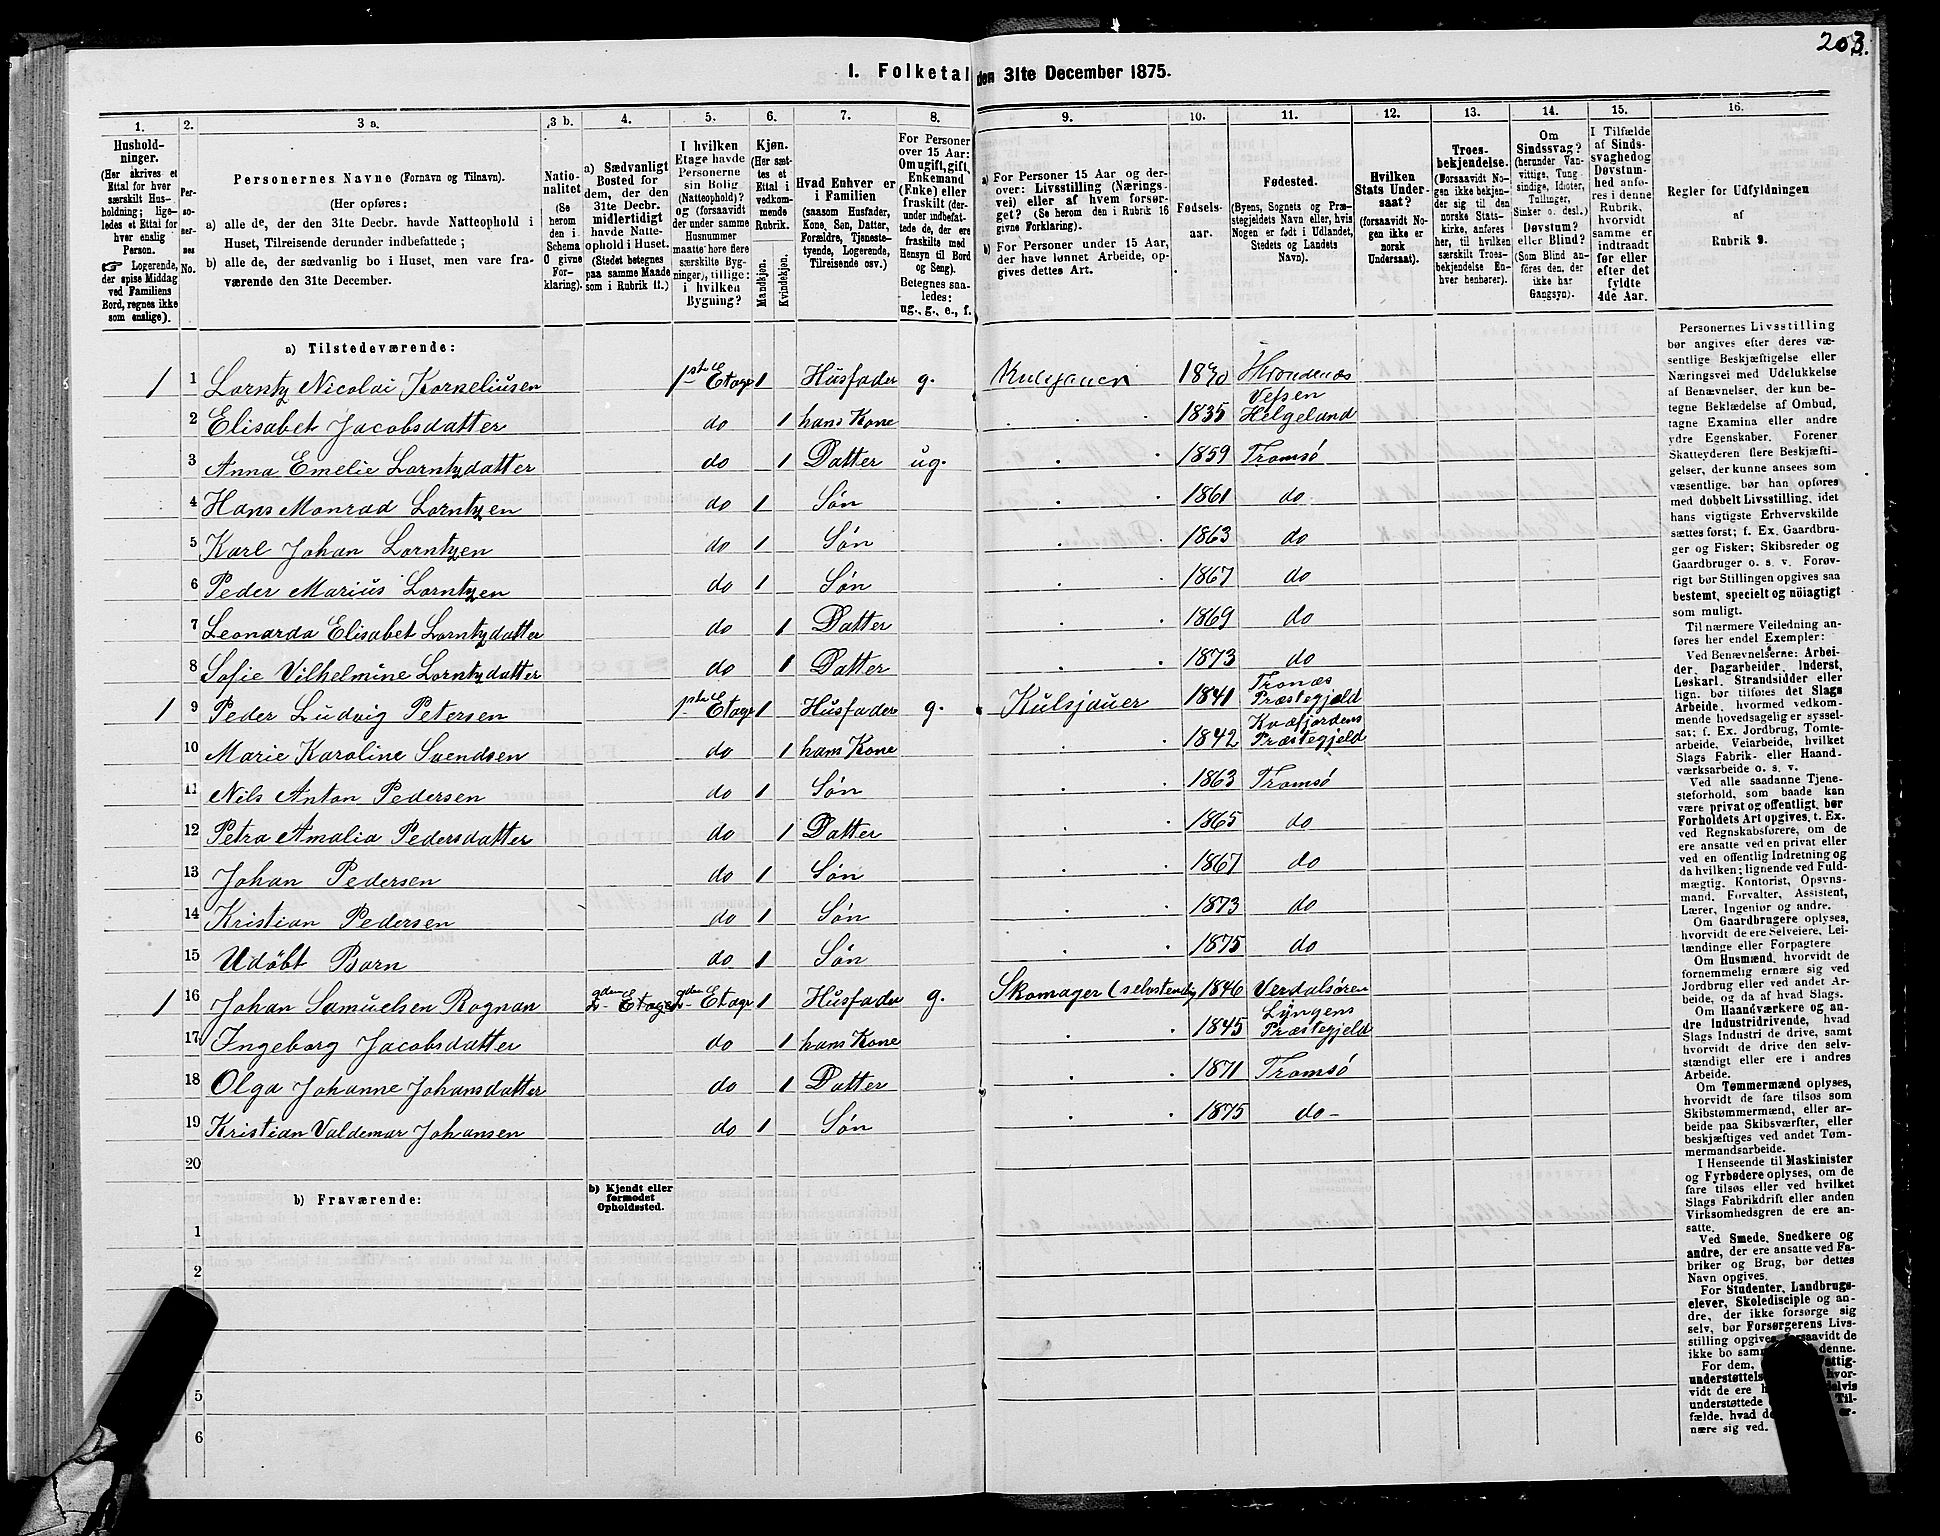 203.
I. Folketal den 31te December 1875.
1. 2. 3 a. 3 b. 4. 5. 6. 7. 8. 9. 10. 11. 12. 13. 14. 15. 16.
Hushold-
ninger.
(Her skrives et
Ettal for hver
særskilt Hus-
holdning; lige-
ledes et Ettal for
hver enslig
Person.
☞ Logerende,
der spise Middag
ved Familiens
Bord, regnes ikke
som enslige).
Per-
so-
ner-
nes
No.
Personernes Navne (Fornavn og Tilnavn).
(Her opføres:
a) alle de, der den 31te Decbr. havde Natteophold i
Huset, Tilreisende derunder indbefattede;
b) alle de, der sædvanlig bo i Huset, men vare fra-
værende den 31te December.
Natio-
nalitet
(Se
herom
den i
Schema
O givne
For-
klaring).
a) Sædvanligt
Bosted for
dem, der den
31te Decbr.
midlertidigt
havde Natte-
ophold i Huset.
(Stedet betegnes
paa samme Maade
som i Rubrik 11.)
I hvilken
Etage havde
Personerne
sin Bolig
(Natteophold)?
og (forsaavidt
der under samme
Husnummer
maatte høre flere
særskilte Byg-
ninger), tillige:
i hvilken
Bygning?
Kjøn.
(Her sæt-
tes et
Ettal i
vedkom-
mende
Rubrik.
Mandkjøn.
Kvindekjøn.
Hvad Enhver er
i Familien
(saasom Husfader,
Kone, Søn, Datter,
Forældre, Tjeneste-
tyende, Logerende,
Tilreisende osv.)
For Personer
over 15 Aar:
Om ugift, gift,
Enkemand
(Enke) eller
fraskilt (der-
under indbefat-
tede de, der ere
fraskilte med
Hensyn til Bord
og Seng).
Betegnes saa-
ledes:
ug., g., e., f.
a) For Personer 15 Aar og der-
over: Livsstilling (Nærings-
vei) eller af hvem forsør-
get? (Se herom den i Rubrik 16
givne Forklaring).
b) For Personer under 15 Aar,
der have lønnet Arbeide, op-
gives dettes Art.
Fødsels-
aar.
Fødested.
(Byens, Sognets og Præ-
stegjeldets Navn eller, hvis
Nogen er født i Udlandet,
Stedets og Landets
Navn).
Hvilken
Stats Under-
saat?
(forsaavidt No-
gen ikke er
norsk
Undersaat).
Troes-
bekjendelse.
(Forsaavidt No-
gen ikke bekjen-
der sig til den
norske Stats-
kirke, anføres
her, til hvilken
særskilt Troes-
bekjendelse En-
hver henhører).
Om
Sindssvag?
(herunder Van-
vittige, Tung-
sindige, Idioter,
Tullinger,
Sinker o. desl.)
Døvstum?
eller Blind?
(Som Blind an-
føres den, der
ikke har
Gangsyn).
I Tilfælde
af Sinds-
svaghed og
Døvstum-
hed anfø-
res i denne
Rubrik,
hvorvidt
samme er
indtraadt
før eller
efter det
fyldte
4de Aar.
Regler for Udfyldningen
af
Rubrik 9.
a) Tilstedeværende:
1 1 Lorntz Nicolai Korneliusen 1ste Etage 1 Husfader g. Kulsjauer 1830 Throndenæs
2 Elisabet Jacobsdatter do 1 hans Kone 1835 Vefsen Helgeland
3 Anna Emelie Lorntzdatter do 1 Datter ug. 1859 Tromsø
4 Hans Monrad Lorntzen do 1 Søn 1861 do
5 Karl Johan Lorntzen do 1 Søn 1863 do
6 Peder Marius Lorntzen do 1 Søn 1867 do
7 Leonarda Elisabet Lorntzdatter do 1 Datter 1869 do
8 Sofie Vilhelmine Lorntzdatter do 1 Datter 1873 do
1 9 Peder Ludvig Petersen 1ste Etage 1 Husfader g. Kulsjauer 1841 Tronæs Præstegjeld
10 Marie Karoline Svendsen do 1 hans Kone 1842 Kvæfjordens Præstegjeld
11 Nils Anton Pedersen do 1 Søn 1863 Tromsø
12 Petra Amalia Pedersdatter do 1 Datter 1865 do
13 Johan Pedersen do 1 Søn 1867 do
14 Kristian Pedersen do 1 Søn 1873 do
15 Udøbt Barn do 1 Søn 1875 do
1 16 Johan Samuelsen Rognan 2den Etage 2den Etage 1 Husfader g. Skomager (selvstendig 1846 Verdalsøren
17 Ingeborg Jacobsdatter do 1 hans Kone 1845 Lyngens Præstegjeld
18 Olga Johanne Johansdatter do 1 Datter 1871 Tromsø
19 Kristian Valdemar Johansen do 1 Søn 1875 do -
20
b) Fraværende:
b) Kjendt eller
formodet
Opholdssted.
1
2
5
6
Personernes Livsstilling
bør angives efter deres væ-
sentlige Beskjæftigelse eller
Næringsvei med Udelukkelse
af Benævnelser, der kun be-
tegne Beklædelse af Ombud,
tagne Examina eller andre
ydre Egenskaber. Forener
Skatteyderen flere Beskjæfti-
gelser, der kunne ansees som
væsentlige, bør han opføres
med dobbelt Livsstilling, idet
hans vigtigste Erhvervskilde
sættes først; f. Ex. Gaardbru-
ger og Fisker; Skibsreder og
Gaardbruger o. s. v. Forøv-
rigt bør Stillingen opgives saa
bestemt, specielt og nöiagtigt
som muligt.
Til nærmere Veiledning an-
føres her endel Exempler:
Ved Benævnelserne: Arbei-
der Dagarbeider, Inderst,
Løskarl, Strandsidder eller
lign. bør tilføies det Slags
Arbeide, hvormed vedkom-
mende hovedsagelig er syssel-
sat; f. Ex. Jordbrug, Tomte-
arbeide, Veiarbeide, hvilket
Slags Fabrik- eller Haand-
værksarbeide o. s. v.
Ved alle saadanne Tjene-
steforhold, som baade kan
være privat og offentligt, bør
Forholdets Art opgives, t. Ex.
ved Regnskabsførere, om de
ere ansatte ved en privat eller
ved en offentlig Indretning og
da hvilken; lignende ved Fuld-
mægtig, Kontorist, Opsyns-
mand, Forvalter, Assistent,
Lærer, Ingeniør og andre.
Om Gaardbrugere oplyses,
hvorvidt de ere Selveiere, Lei-
lændinge eller Forpagtere
Om Husmænd, hvorvidt de
fornemmelig ernære sig ved
Jordbrug eller ved andet Ar-
beide, og da af hvad Slags.
Om Haandværkere og an-
dre Industridrivende, hvad
Slags Industri de drive, samt
hvorvidt de drive den selv-
stændigt eller ere i andres
Arbeide.
Om Tømmermænd oplyses,
hvorvidt de fare tilsøs som
Skibstømmermænd, eller ar-
beide paa Skibsværfter, eller
beskjæftiges ved andet Tøm-
mermandsarbeide.
I Henseende til Maskinister
og Fyrbødere oplyses, om de
fare tilsøs eller ved hvilket
Slags Fabrikdrift eller anden
Virksomhedsgren de ere an-
satte.
Ved Smede, Snedkere og
andre, der ere ansatte ved Fa-
briker og Brug, bør dettes
Navn opgives.
For Studenter, Landbrugs-
elever, Skoledisciple og an-
dre, der ikke forsørge sig
selv, bør Forsørgerens Livs-
stilling opgives, forsaavidt de
ikke bo sam denne.
For dem, attig-
understøttels hvor-
vidt de ere delvis
understøttede Til-
fælde, hvad de er-
nære sig ved.